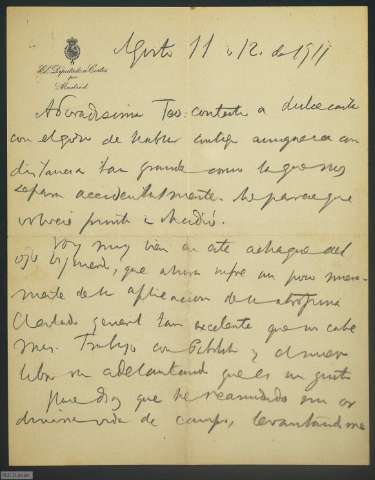 El Diputado a Cortes
por
Madrid
Agosto 11 o 12 de 1911
Adoradisima Teo: contesto a dulce carta
con el gozo de hablar contigo aunque sea con
distancia tan grande como la que nos
separa accidentalmente. Me parece que
volveré pronto a Madrid.
Voy muy bien en este achaque del
ojo izquierdo, que ahora sufre un poco
mente de la aplicacion de la atropina
El estado general tan excelente que no cabe
mas. Trabajo con Pablo y el nuevo
libro va adelantando que es un gusto
Puede que he reanudado mi
vida de campo, levantandome